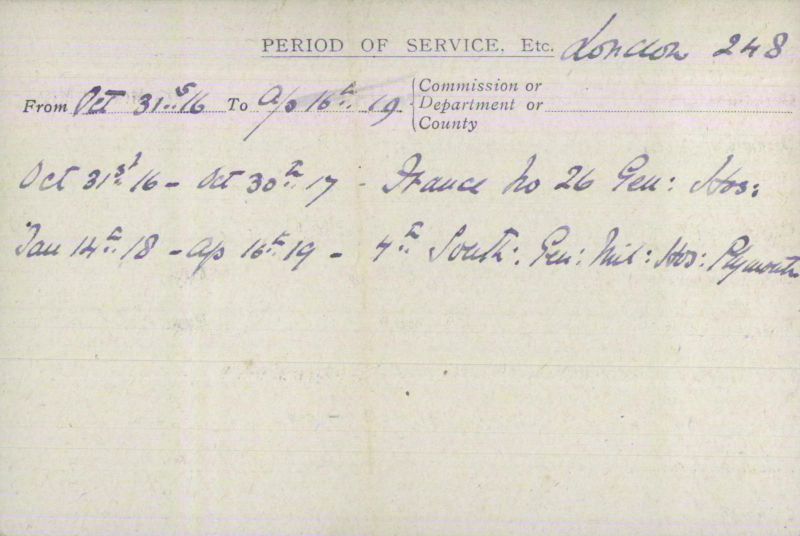 PERIOD OF SERVICE, Etc. London 248
From Oct 31st 16 To Ap 16th 19 Commission or
Department or
County
Oct 31st 16 - Oct 30th 17 - France No 26 Gen: Hos:
Jan 14th 18 - Ap 16th 19 - 4th South: Gen: Mil: Hos: Plymouth